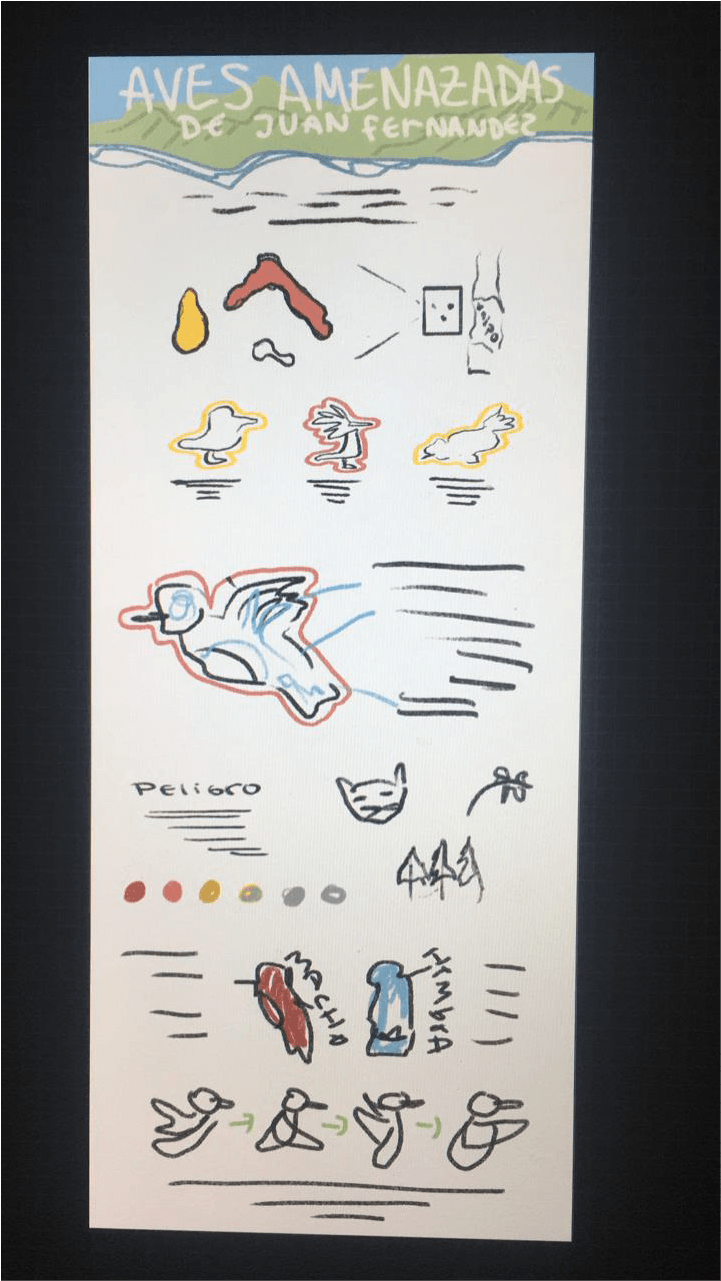 AVES AMENAZADAS
DE JUAN FERNANDEZ
PELIGRO
MACHO
HEMBRA